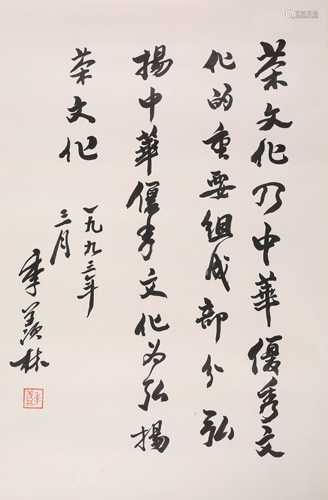 茶文化乃中華優秀文
化的重要組成部分弘
揚中華優秀文化为弘揚
茶文化
一九九三年
三月
季羡林